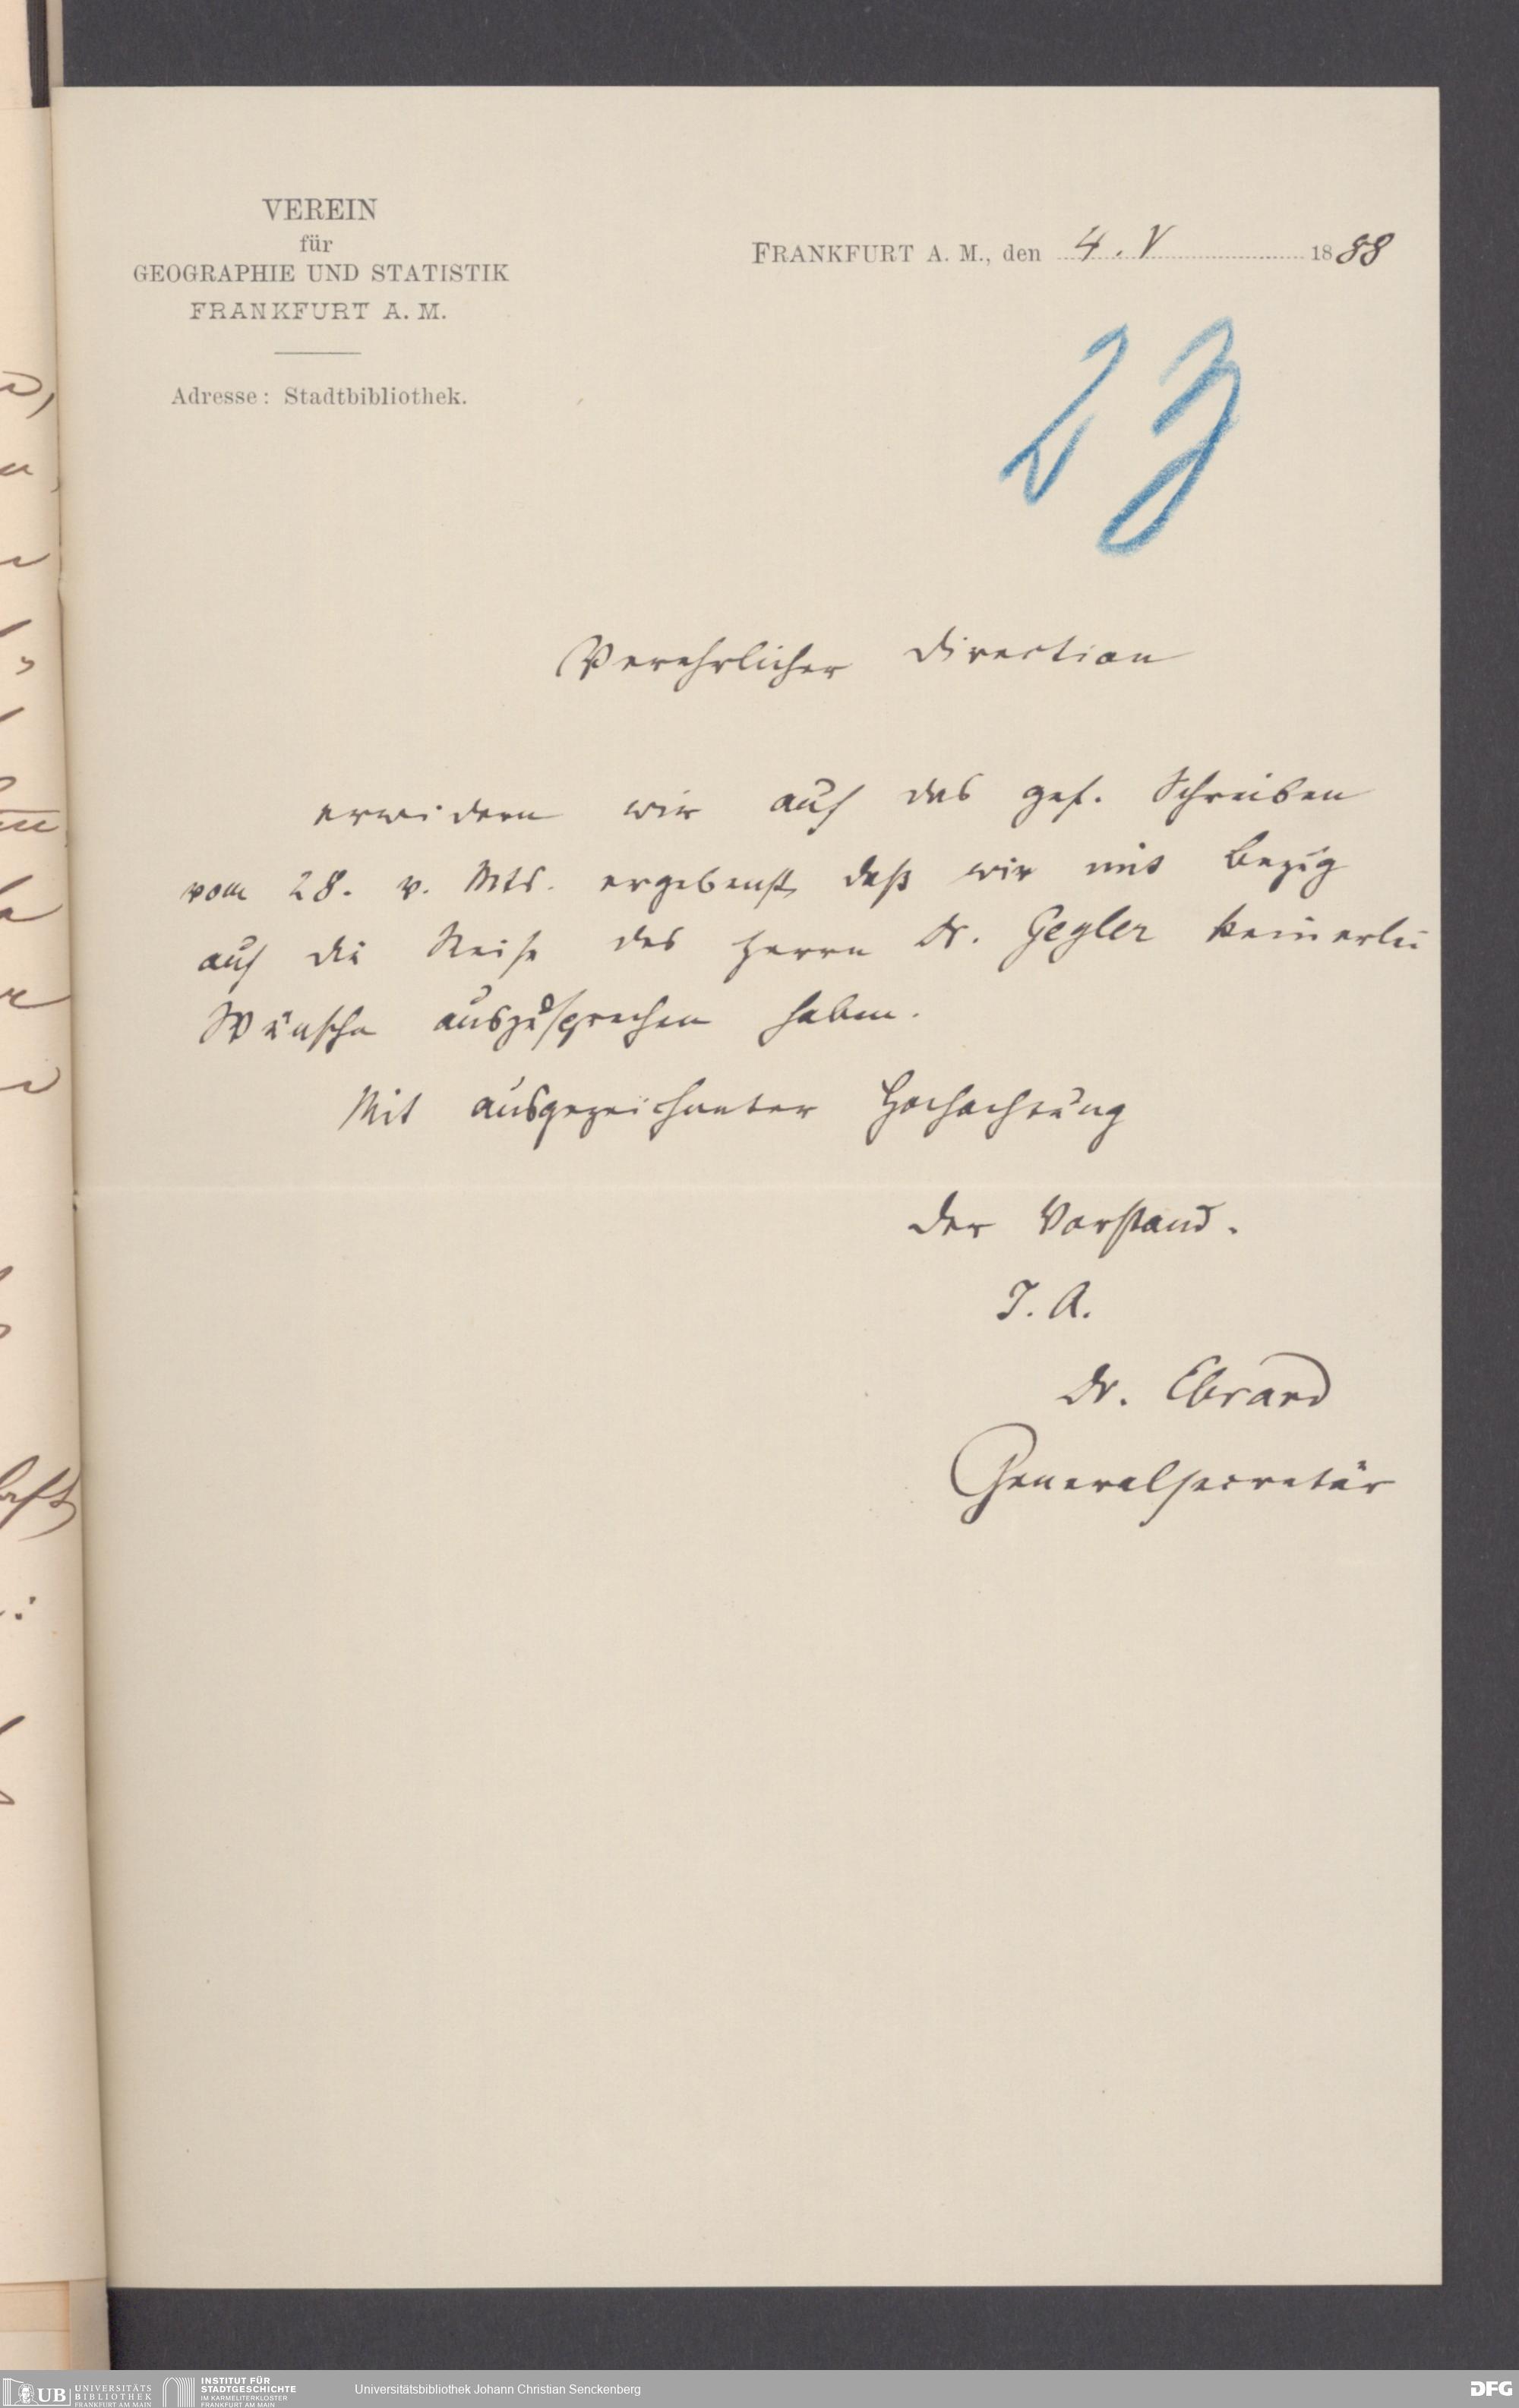 VEREIN
für
GEOGRAPHIE UND STATISTIK
FRANKFURT A. M.
Adresse: Stadtbibliothek.
FRANKFURT A. M., den 4. V 1888
23
Verehrlicher Direction
erwidern wir auf das gef. Schreiben
vom 28. v. Mts. ergebenst, daß wir mit Bezug
auf die Reise des Herrn Dr. Gegler keinerlei
Wünsche auszusprechen haben.
Mit ausgezeichneter Hochachtung
Der Vorstand.
I. A.
Dr. Ebrard
Generalsecretär
UB UNIVERSITÄTS
BIBLIOTHEK
FRANKFURT AM MAIN
INSTITUT FÜR
STADTGESCHICHTE
IM KARMELITERKLOSTER
FRANKFURT AM MAIN
Universitätsbibliothek Johann Christian Senckenberg
DFG